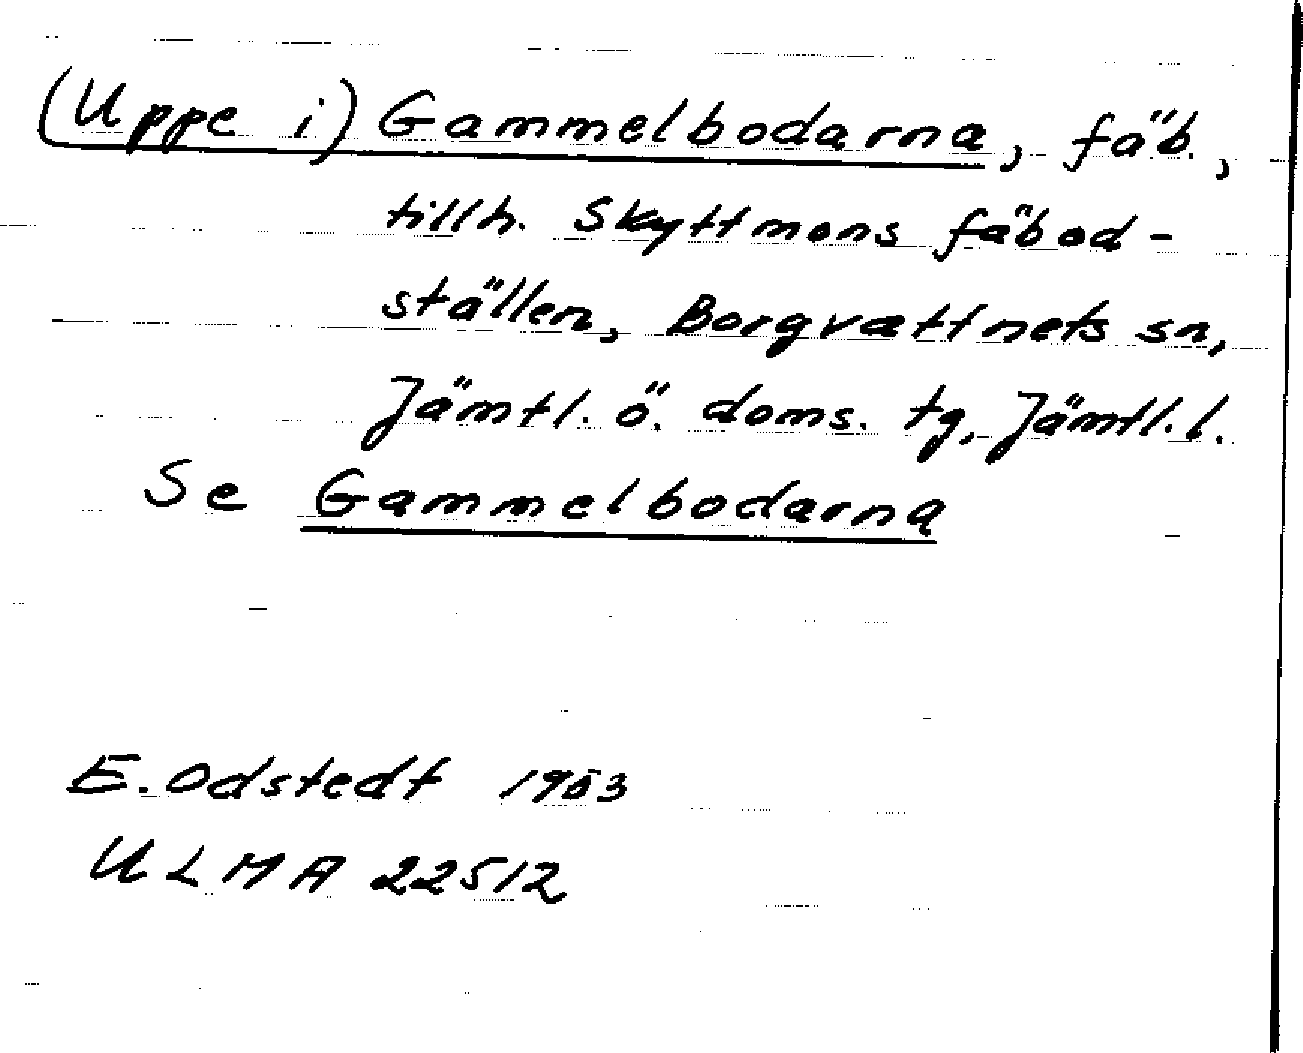 (Uppe i) Gammelbodarna, fäb.,
tillh. Skyttmons fäbod-
ställen, Borgvattnets sn,
Jämtl. ö. doms. tg, Jämtl. l.
Se Gammelbodarna
E. Odstedt 1953
ULMA 22512